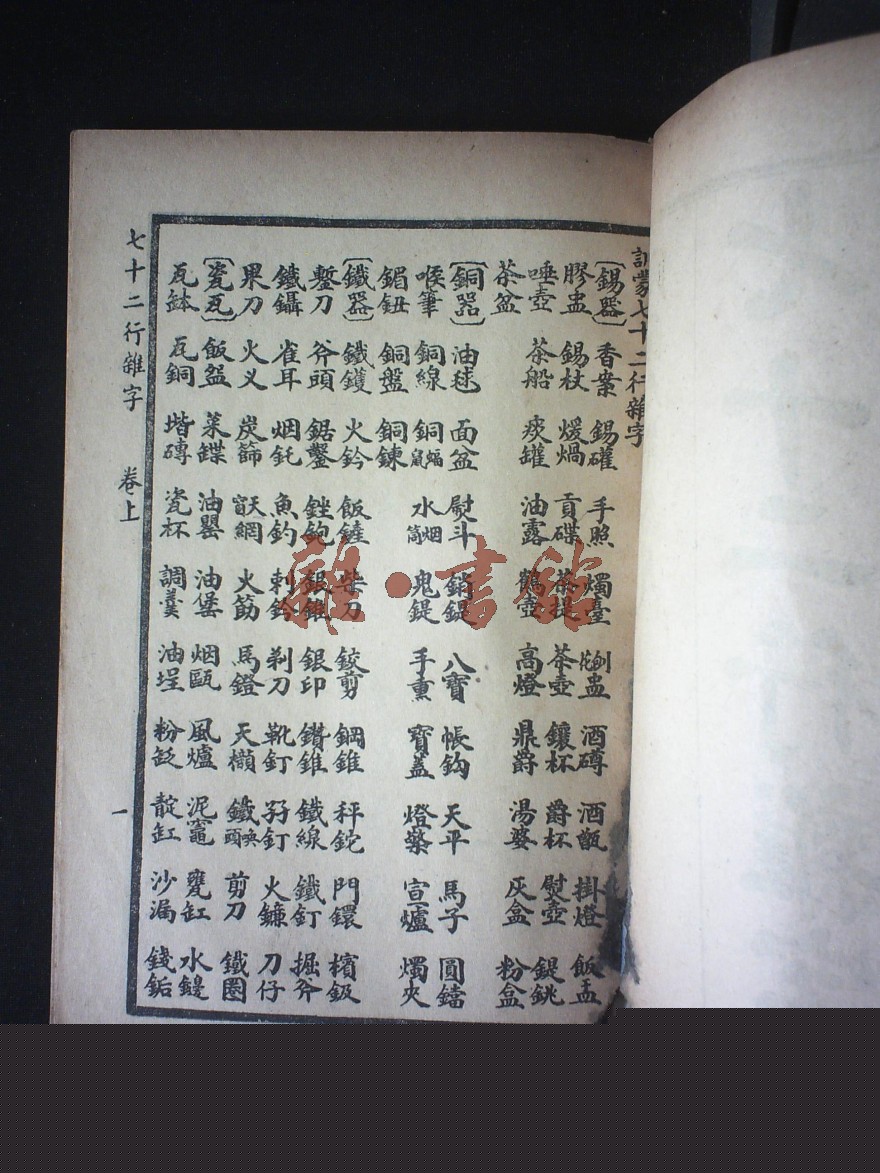 訓蒙七十二行雜字
〔錫器〕 香案 錫礶 手照 燭臺 酒磚 酒甑 掛燈 飯盂
膠盅 錫杖 煖煱 貢碟 茶提 茶壺 鑲杯 爵杯 熨壺 鍉銚
唾壺 茶船 痰罐 油露 鶴壺 高燈 鼎爵 湯婆 灰盒 粉盒
茶盆
〔銅器〕 油毬 面盆 熨斗 銷鍉 八寶 帳鈎 天平 馬子 圓鐺
喉筆 銅線 銅 水烟筒 鬼鍉 手熏 寶蓋 燈檠 宣爐 燭夾
鎇鈕 銅盤 銅鍊
〔鐵器〕 鐵鑊 火鈐 飯鏟 柴刀 鉸剪 鋼錐 秤鉈 門鐶 檳鈒
鏨刀 斧頭 鋸鑿 銼鉋 銀錐 銀印 鑽錐 鐵線 鐵釘 掘斧
鐵鑷 雀耳 烟釓 魚釣 刺鈐 剃刀 靴釘 孖釘 火鐮 刀仔
果刀 火义 炭篩 網 火筯 馬鐙 天欟 鐵喚頭 剪刀 鐵圈
〔瓷瓦〕 飯盆 菜鍱 油罌 油堡 烟甌 風爐 泥竈 甕缸 水鐩
瓦缽 瓦銅 堦磚 瓷杯 調羹 油埕 粉 靛缸 沙漏 錢銗
七十二行雜字 卷上 一
雜·書館